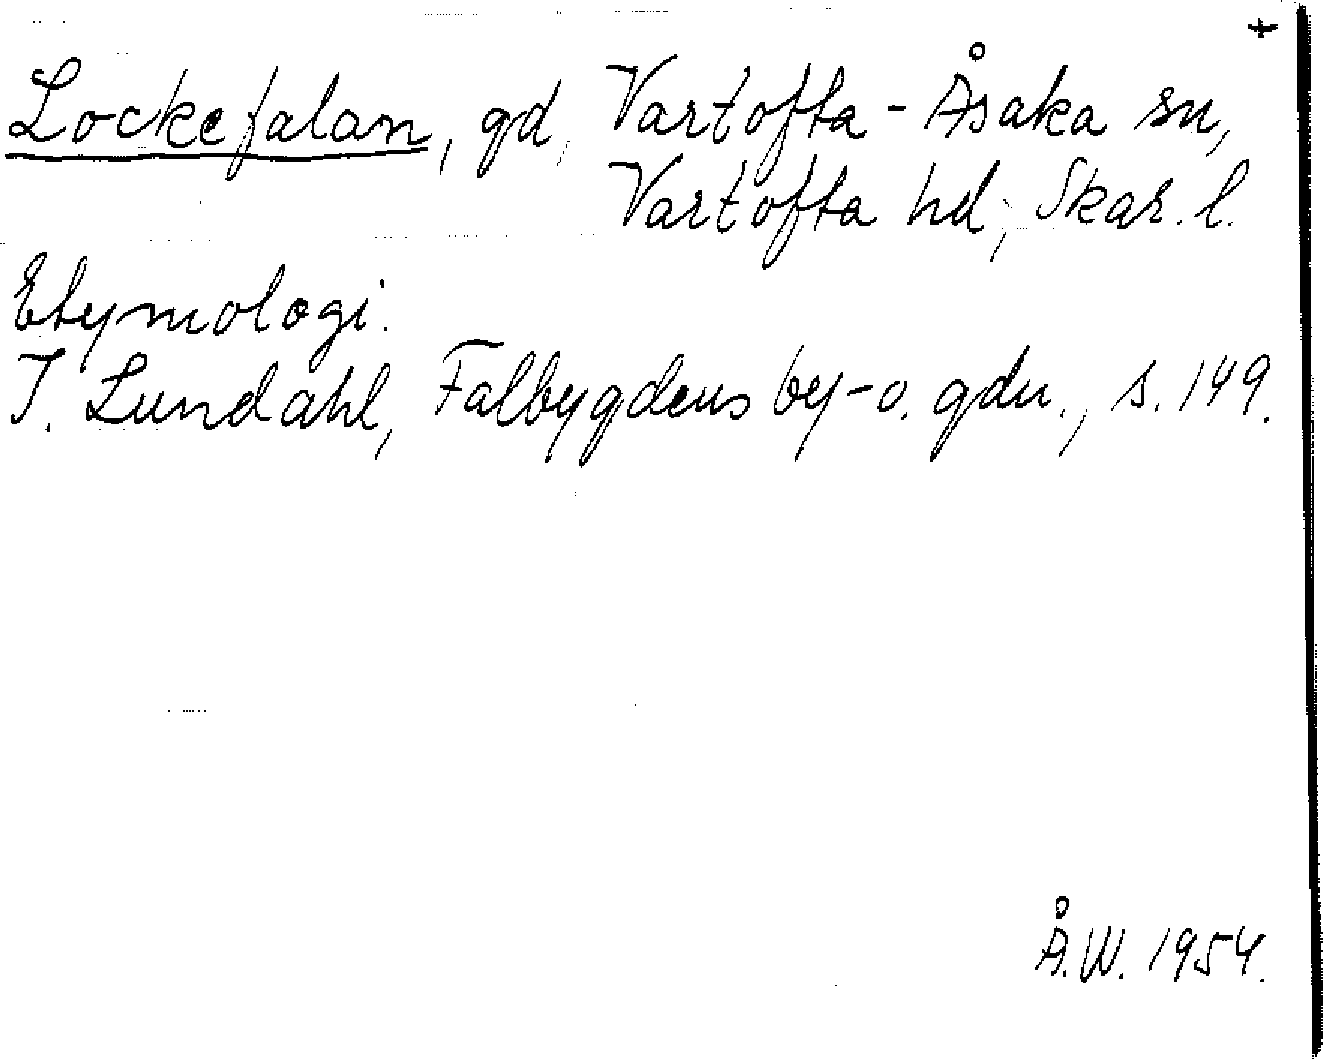 +
Lockefalan, gd, Vartofta-Åsaka sn,
Vartofta hd, Skar. l.
Etymologi.
I. Lundahl, Falbygdens by- o. gdn., s. 149.
Å.W. 1954.